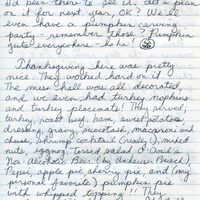 I'd been there to see it. Get a plan
on it for next year, OK? We'll
even have a pumpkin carving
party - remember those? Pumpkin
guts everywhere - ha ha!
Thanksgiving here was pretty
nice. They worked hard on it.
The mess hall was all decorated,
and we even had turkey napkins
and turkey placemats! They served,
turkey, roast beef, ham, sweet potatoes,
dressing, gravy, succotash, macaroni and
cheese, shrimp cocktail (really!), mixed
nuts, eggnog, tossed salad, O'Doul's
No-Alcoholic Beer (by Anheuser Busch),
Pepsi, apple pie, cherry pie, and (my
personal favorite) pumpkin pie
with whipped topping!! They